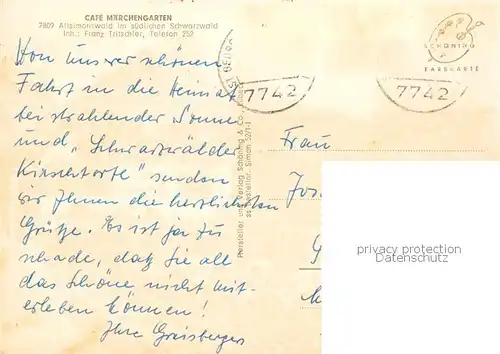 CAFÉ MÄRCHENGARTEN
7809 Altsimonswald im südlichen Schwarzwald
Inh.: Franz Tritschler, Telefon 252
Von unserer schönen
Fahrt in die Heimat
bei strahlender Sonne
und „Schwarzwälder
Kirschtorte" senden
wir Ihnen die herzlichsten
Grüße. Es ist ja zu
schade, daß Sie all
das Schöne nicht mit-
erleben können!
Ihre Greisberger
Hersteller und Verlag Schöning & Co.
7742
7742
SCHÖNING
FARBKARTE
Frau
Jos
privacy protection
Datenschutz